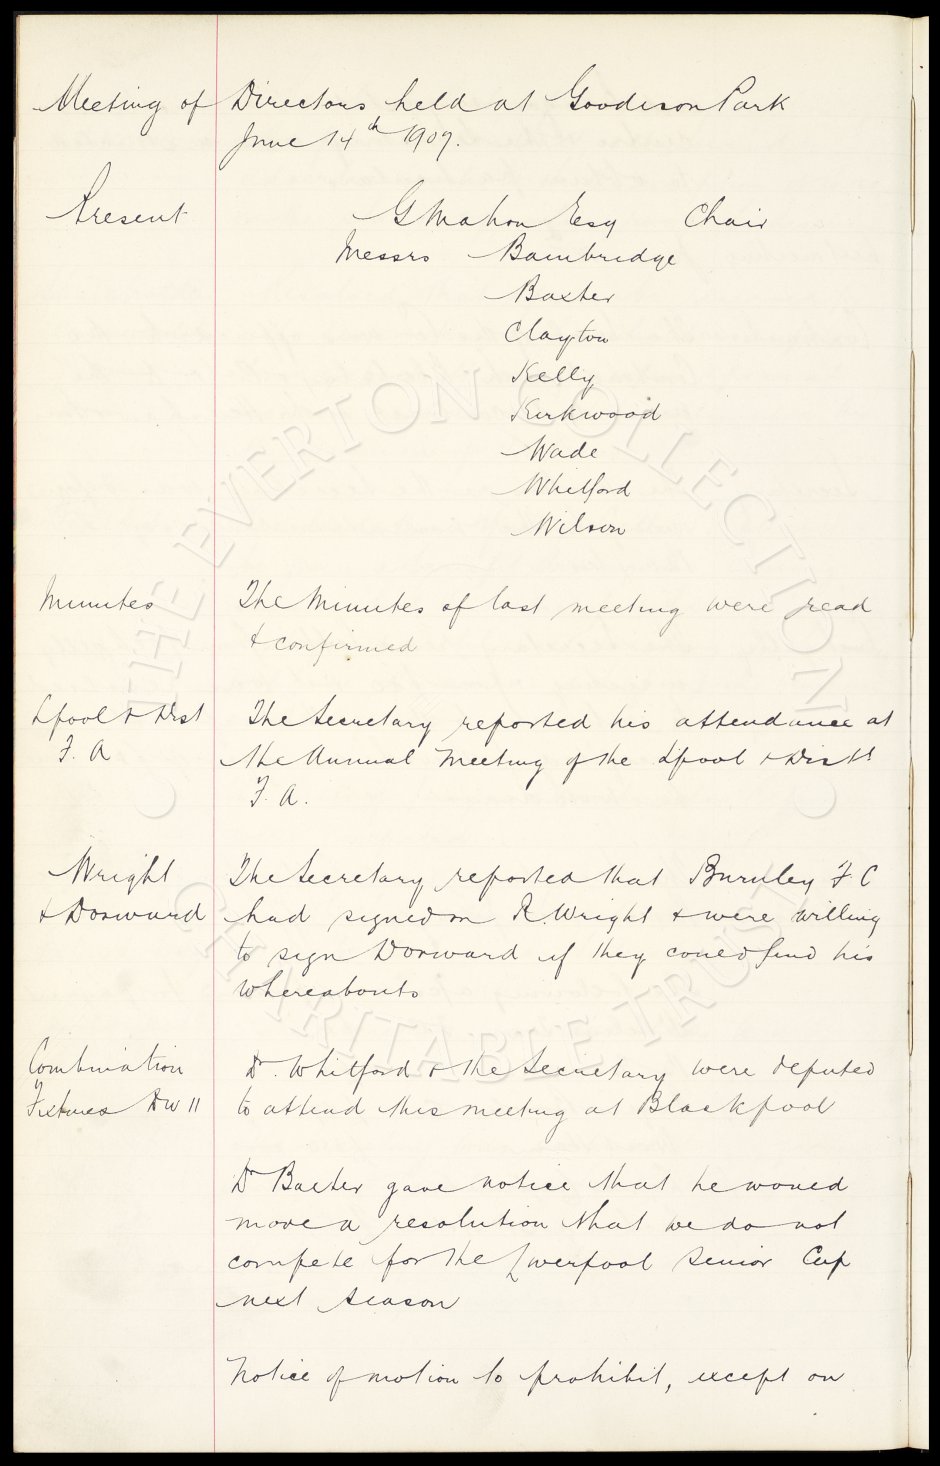 Meeting of Directors held at Goodison Park
June 14th 1907.
Present
G Mahon Esq Chair
Messrs Bainbridge
Baxter
Clayton
Kelly
Kirkwood
Wade
Whitford
Wilson
Minutes
The Minutes of last meeting were read
& confirmed
Lpool & Dist
F. A
The Secretary reported his attendance at
the Annual Meeting of the Lpool & Dist
F. A.
Wright
& Dorward
The Secretary reported that Burnley F C
had signed on R Wright & were willing
to sign Dorward if they could find his
whereabouts
Combination
Fixtures Dw 11
Dr. Whitford & the Secretary were deputed
to attend this meeting at Blackpool
Dr Baxter gave notice that he would
move a resolution that we do not
compete for the Liverpool Senior Cup
next season
Notice of motion to prohibit, except on
THE EVERTON COLLECTION
CHARITABLE TRUST